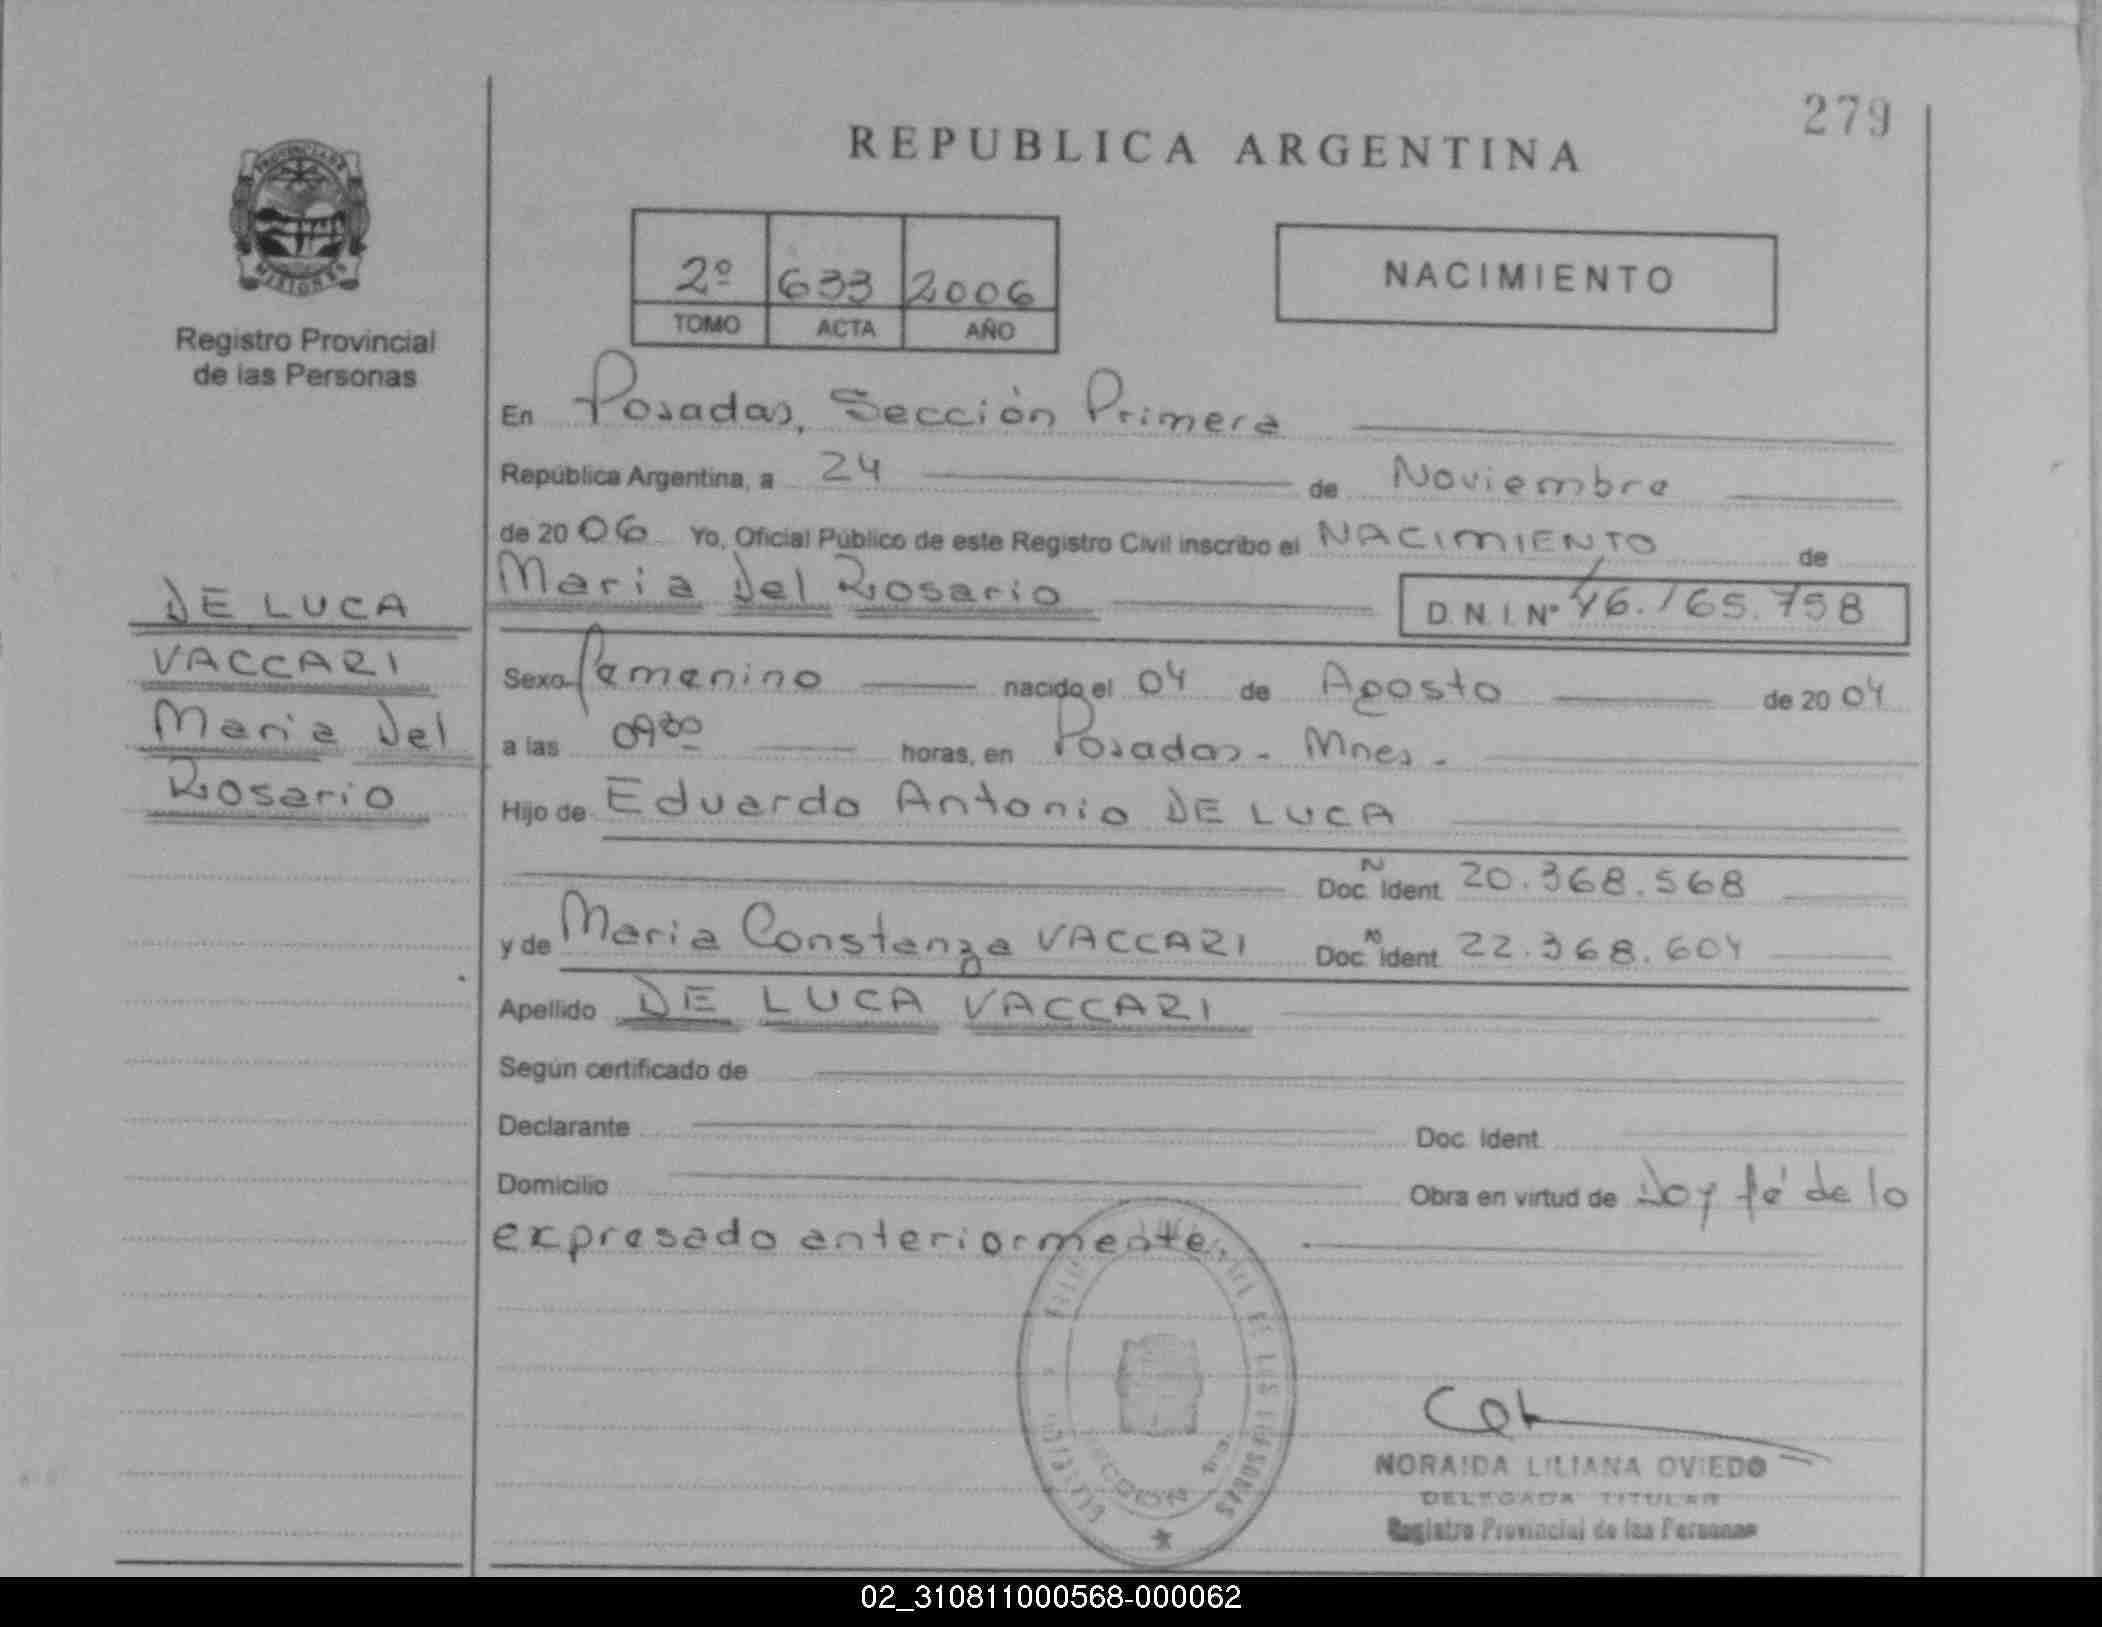 279
REPUBLICA ARGENTINA
PROVINCIA DE
MISIONES
Registro Provincial
de las Personas
2º 633 2006
TOMO ACTA AÑO
NACIMIENTO
En Posadas, Sección Primera
República Argentina, a 24 de Noviembre
de 2006 Yo, Oficial Público de este Registro Civil inscribo el NACIMIENTO de
Maria Del Rosario D.N.I. Nº 46.165.758
DE LUCA
VACCARI
Maria Del
Rosario
Sexo femenino nacido el 04 de Agosto de 2004
a las 09:30 horas, en Posadas - Mnes.
Hijo de Eduardo Antonio DE LUCA
Doc. Ident. 20.368.568
y de Maria Constanza VACCARI Doc. Ident. 22.368.604
Apellido DE LUCA VACCARI
Según certificado de
Declarante Doc. Ident.
Domicilio Obra en virtud de Doy fé de lo
expresado anteriormente.
DE LAS PERSONAS
SECCION
NORAIDA LILIANA OVIEDO
DELEGADA TITULAR
Registro Provincial de las Personas
02_310811000568-000062